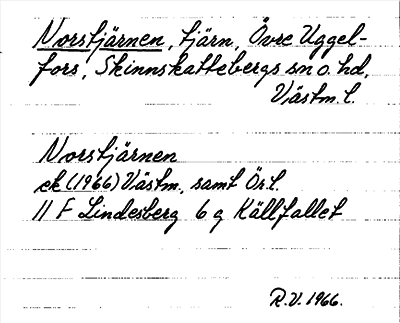 Norstjärnen, tjärn, Övre Uggel-
fors, Skinnskattebergs sn o. hd,
Västm. l.
Norstjärnen
ek (1966) Västm. samt Ör. l.
11 F Lindesberg 6 g Källfallet
R.V. 1966.